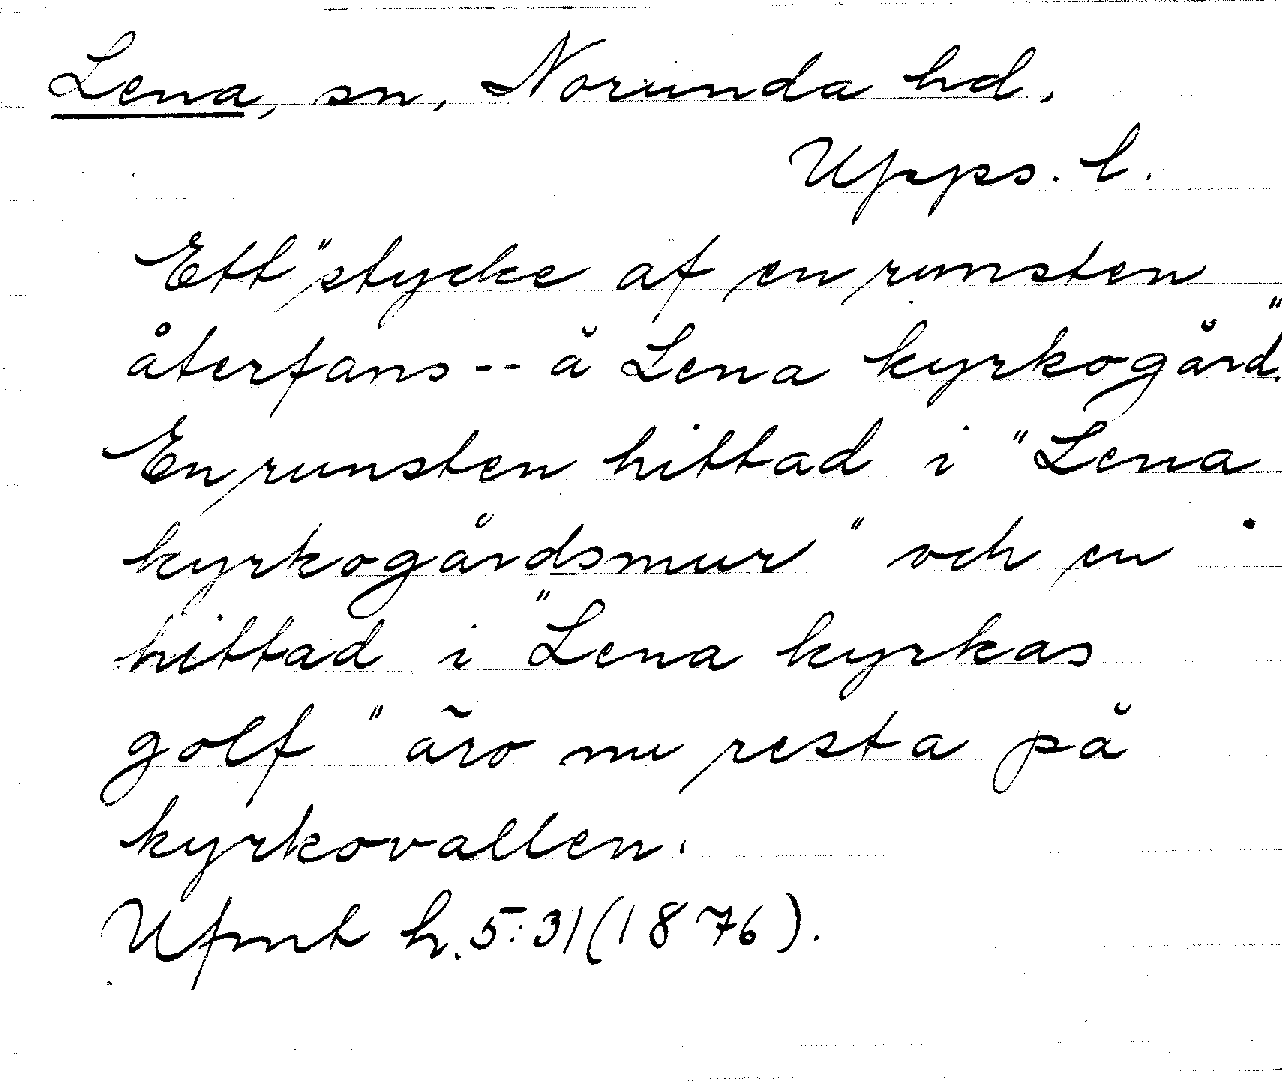 Lena, sn, Norunda hd.
Upps. l.
Ett "stycke af en runsten
återfans -- å Lena kyrkogård".
En runsten hittad i "Lena
kyrkogårdsmur" och en
hittad i "Lena kyrkas
golf" äro nu resta på
kyrkovallen.
Ufmt h. 5:31 (1876).